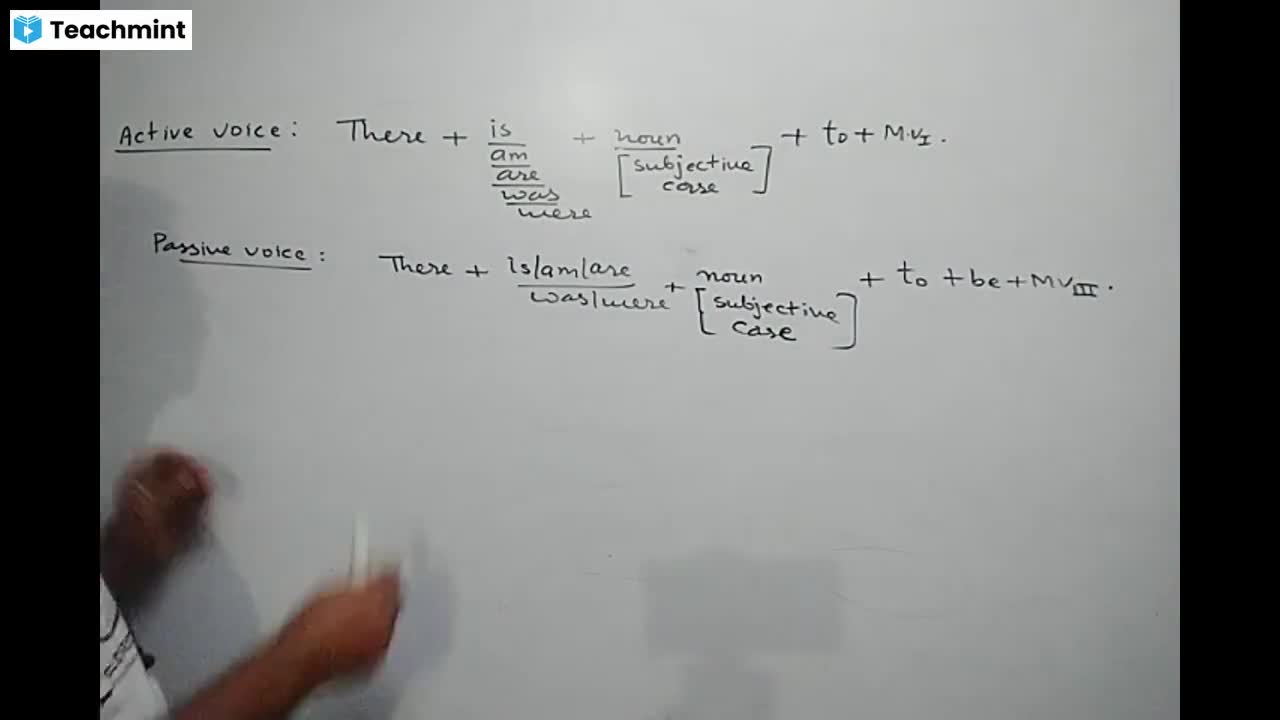 Teachmint
Active voice: There + is + noun + to + M.VI.
am [subjective
are case]
was
were
Passive voice: There + is/am/are + noun + to + be + MVIII.
was/were [subjective
case]